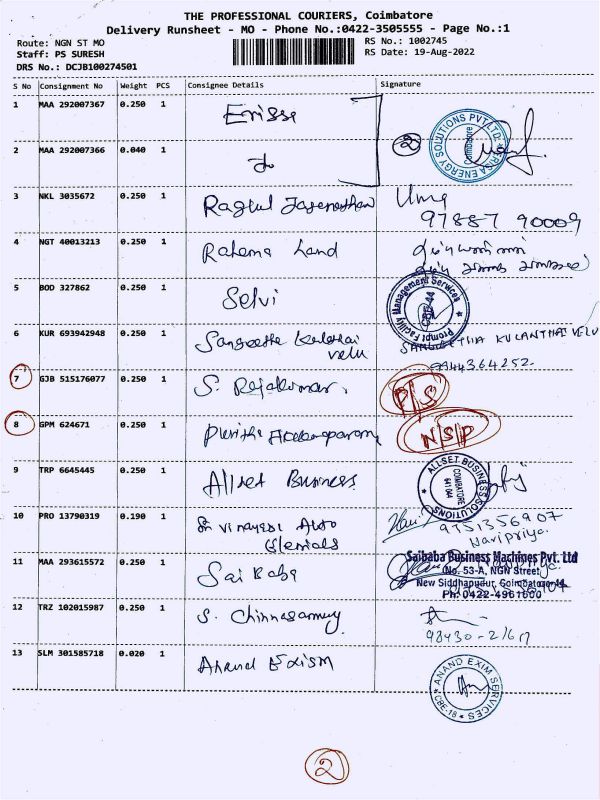 THE PROFESSIONAL COURIERS, Coimbatore
Delivery Runsheet - MO - Phone No.:0422-3505555 - Page No.:1
Route: NGN ST MO
Staff: PS SURESH
DRS No.: DCJB100274501
RS No.: 1002745
RS Date: 19-Aug-2022
S No Consignment No Weight PCS Consignee Details Signature
1 MAA 292007367 0.250 1 Erisse
2 COIMBATORE
2 MAA 292007366 0.040 1 Do
3 NKL 3035672 0.250 1 Uma
97887 90009
4 NGT 40013213 0.250 1 Rahema Land
5 BOD 327862 0.250 1 Selvi
Prompt Facility Management Services
6 KUR 693942948 0.250 1 Sangeetha Kulanthai
velu
SANGEETHA KULANTHAI VELU
9944364252
7 GJB 515176077 0.250 1 S. Rajakumar
P/S
8 GPM 624671 0.250 1
N/S/P
9 TRP 6645445 0.250 1 Allset Business
ALLSET BUSINESS SOLUTIONS
COIMBATORE
641 044
10 PRO 13790319 0.190 1 Sri Vinayega Auto
9751356907
Haripriya.
11 MAA 293615572 0.250 1 Sai Baba
Saibaba Business Machines Pvt. Ltd
No. 53-A, NGN Street,
New Siddhapudur, Coimbatore-44
Ph: 0422-4961600
12 TRZ 102015987 0.250 1 S. Chinnasamy
13 SLM 301585718 0.020 1 Anand Exism
ANAND EXIM SERVICES
CBE-18
2